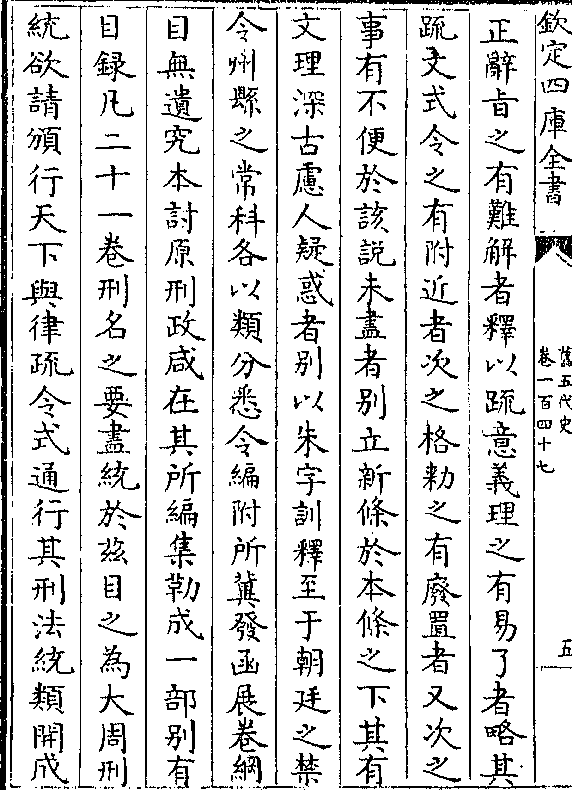 欽定四庫全書
舊五代史
卷一百四十七
五
正辭旨之有難解者釋以疏意義理之有易了者略其
疏文式令之有附近者次之格勑之有廢置者又次之
事有不便於該說未盡者別立新條於本條之下其有
文理深古慮人疑惑者別以朱字訓釋至于朝廷之禁
令州縣之常科各以類分悉令編附所兾發函展卷綱
目無遺究本討原刑政咸在其所編集勒成一部別有
目録凡二十一卷刑名之要盡統於兹目之為大周刑
統欲請頒行天下與律疏令式通行其刑法統類開成